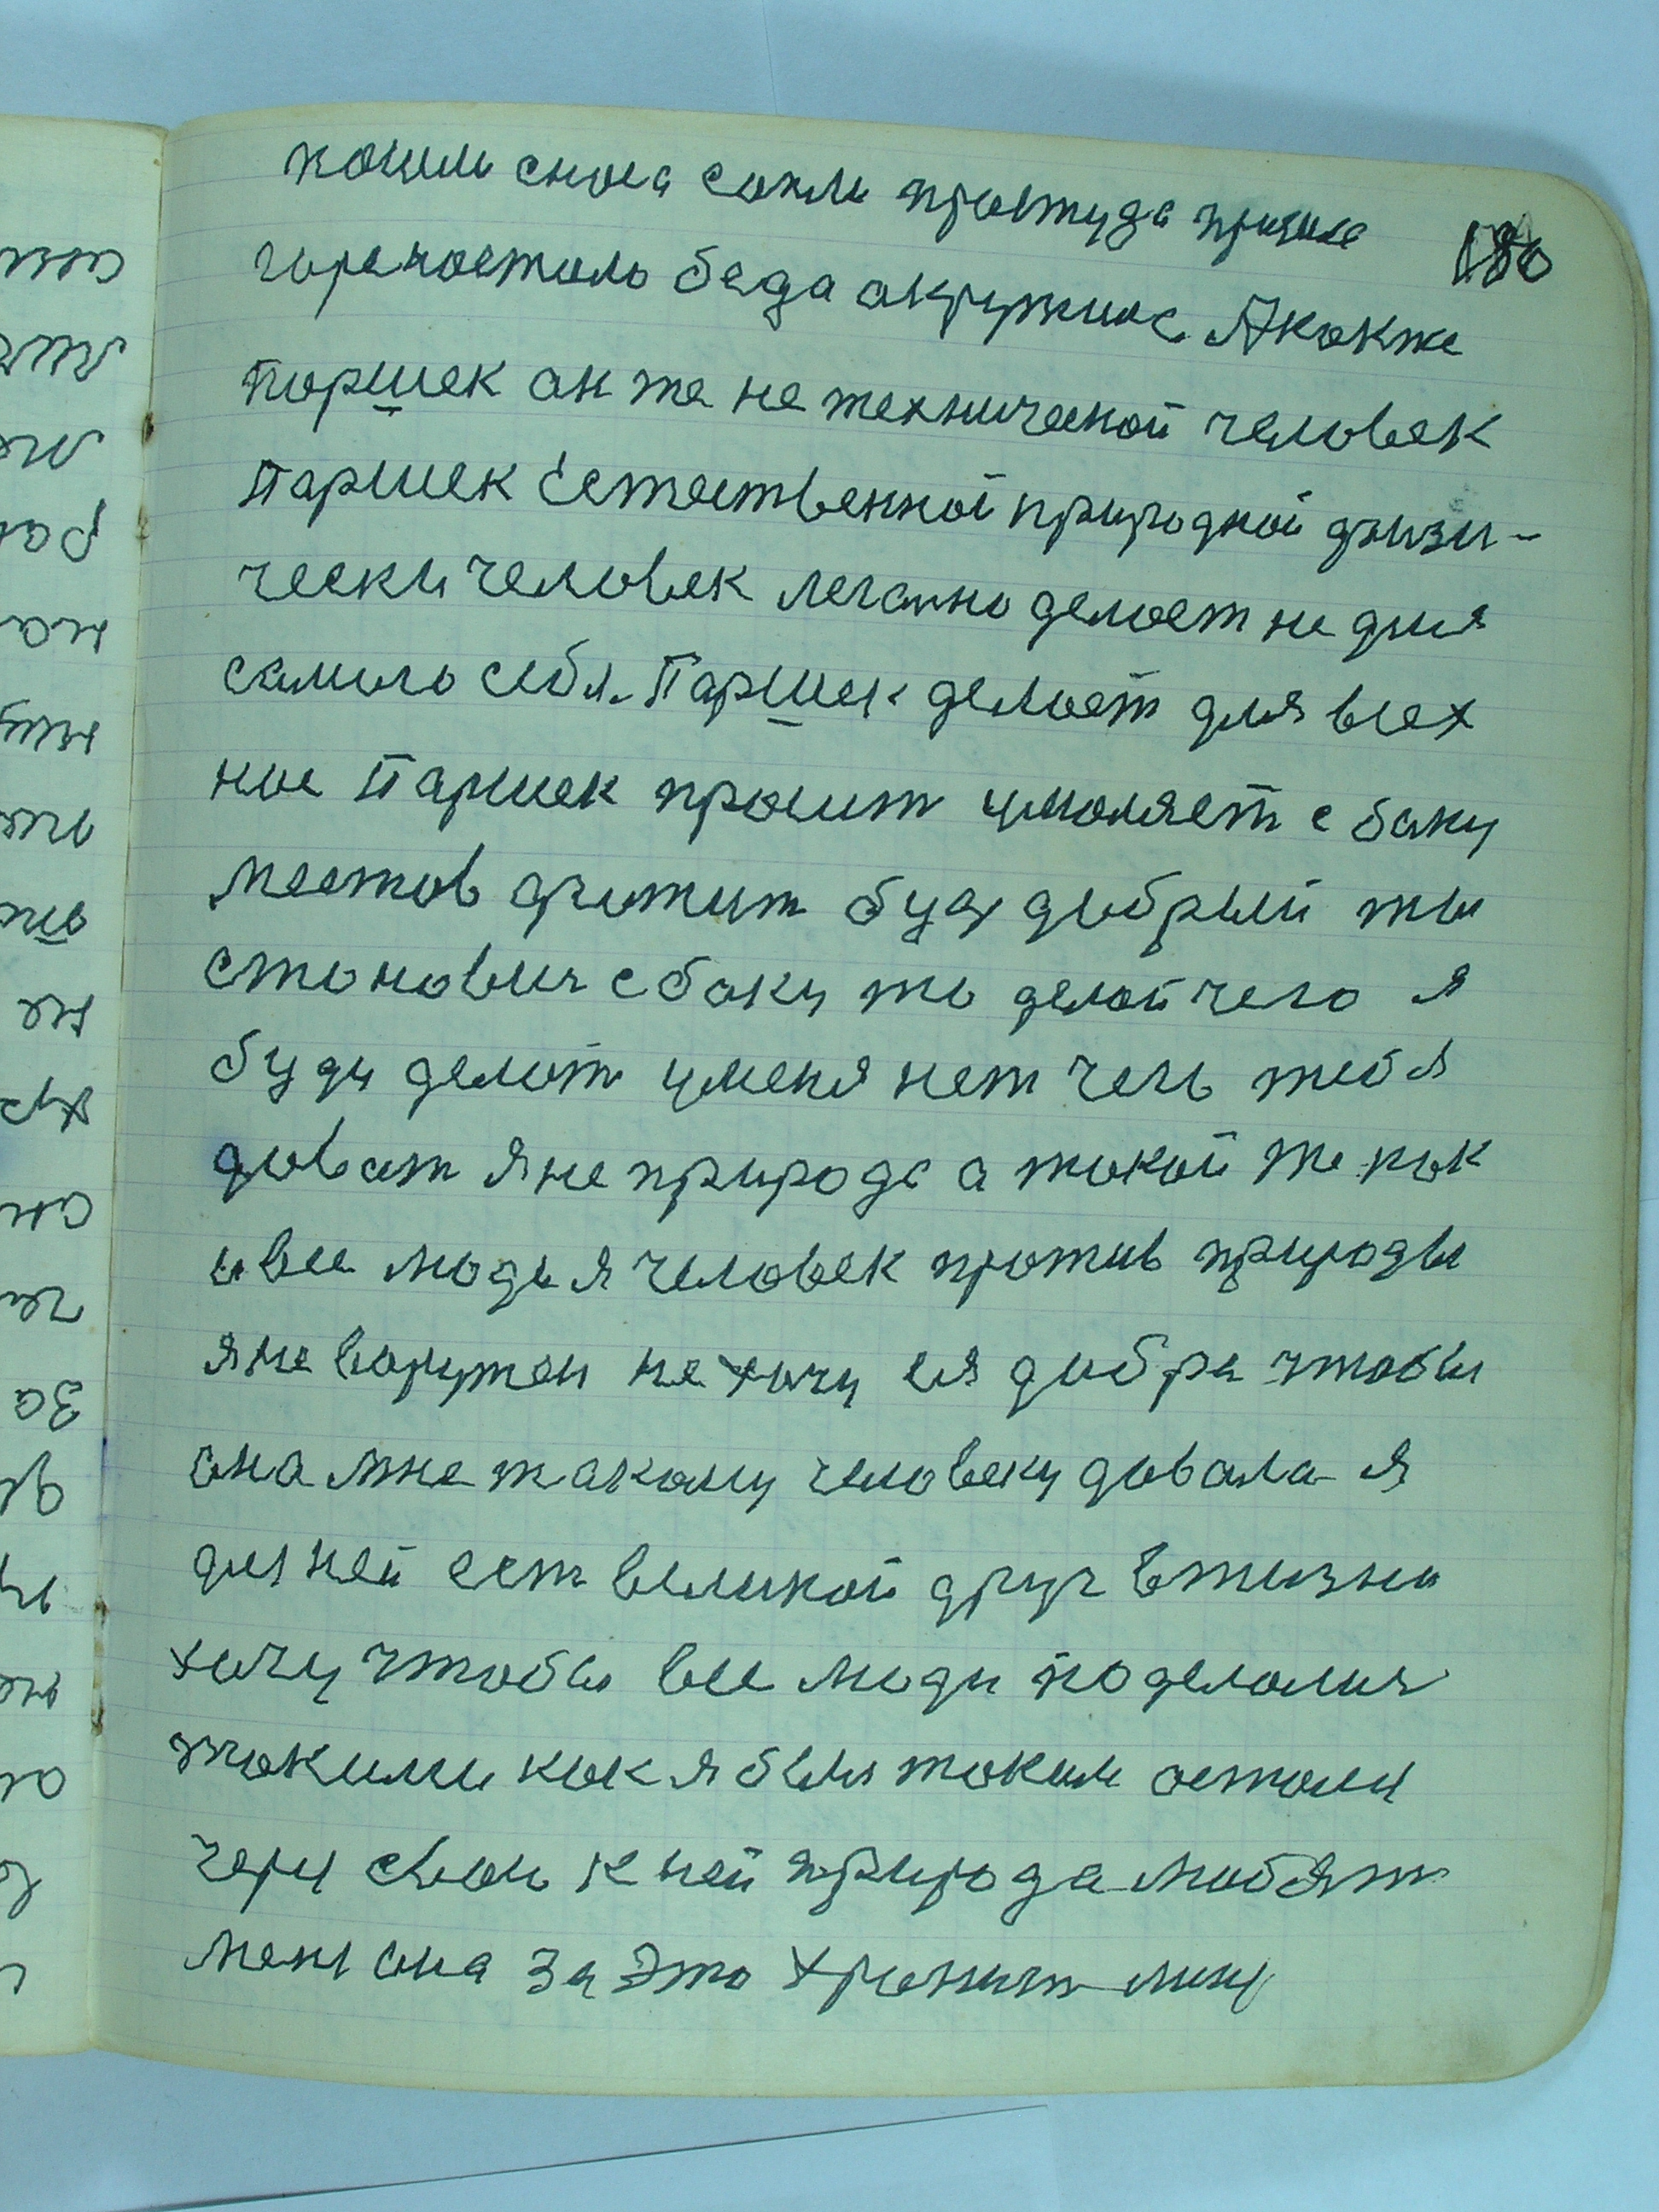 180
снова сопли простуда пришла
беда акружила Акокже
Паршек он же не технической человек
Паршек Естественной природной физи-
чески человек делоет не для
самого себя. Паршек делоет для всех
нас Паршек просит умоляет с боку
буд добрый ты
становися с боку то делой чего я
буду делот уменя нет чего тебя
довать яне природа а токой же как
и все люди я человек против природы
яне воружон не хочу ея добра чтобы
она мне такому человеку довала я
для ней ест великой друг вжизни
хочу чтобы все люди поделолися
токими как я был токим
черу свою к ней природа любят
меня она за Это хронит мину